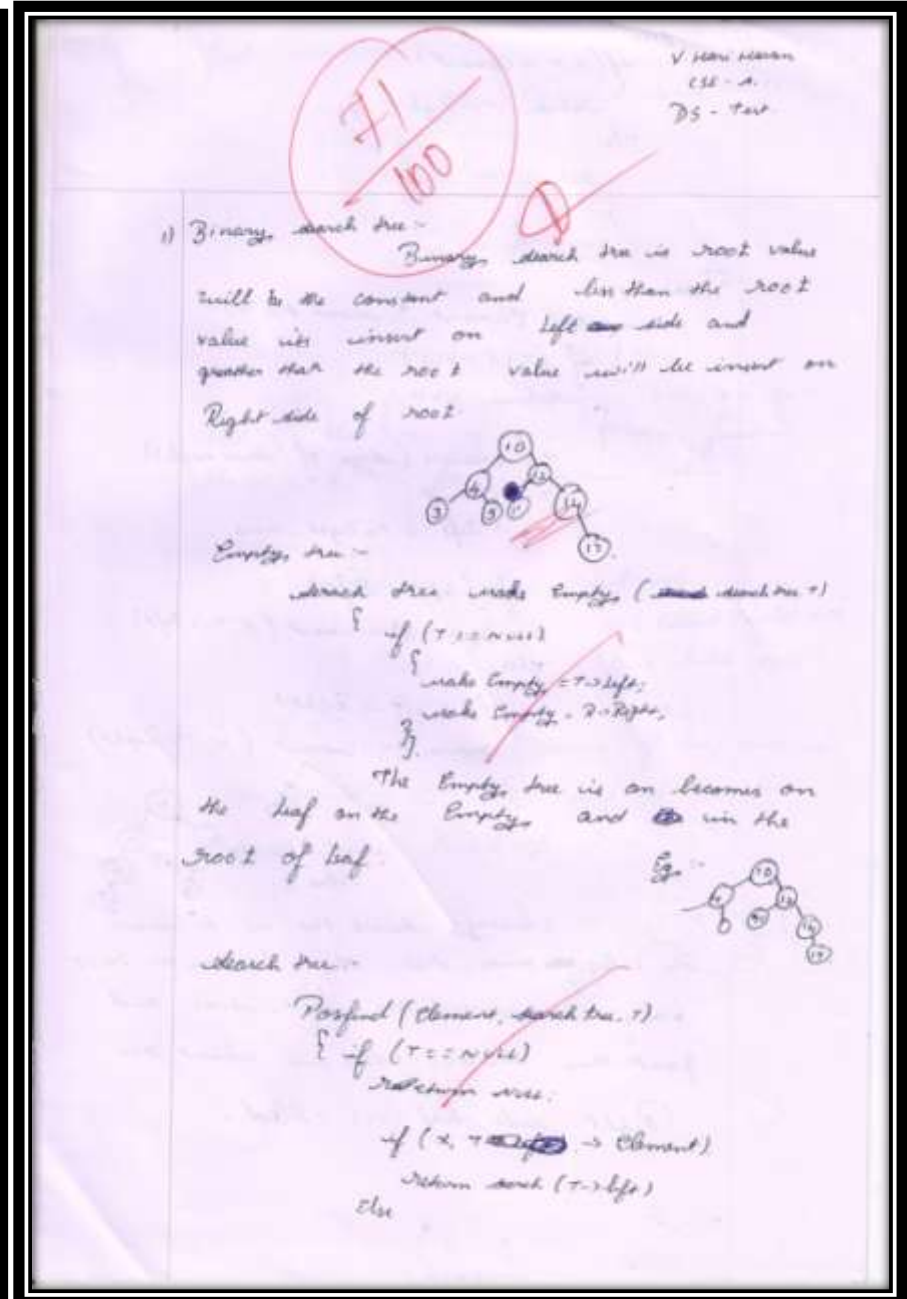 V. Hari Haran
CSE - A.
DS - Test.
71
100
1) Binary search tree :-
Binary search tree is root value
will be the constant and less than the root
value its insert on left side and
greather than the root value will be insert on
Right side of root.
10
4 12
3 5 14
17
Empty tree :-
search tree make Empty (search tree T)
{
if (T != NULL)
{
make Empty = T->Left;
make Empty = R->Right;
}
}.
The Empty tree is an becomes on
the leaf on the Empty and in the
root of leaf.
Eg :-
10
search tree.
Posfind (Element, search tree. T)
{ if (T == NULL)
return NULL;
if (x, T -> Element)
return serch (T->left)
Else